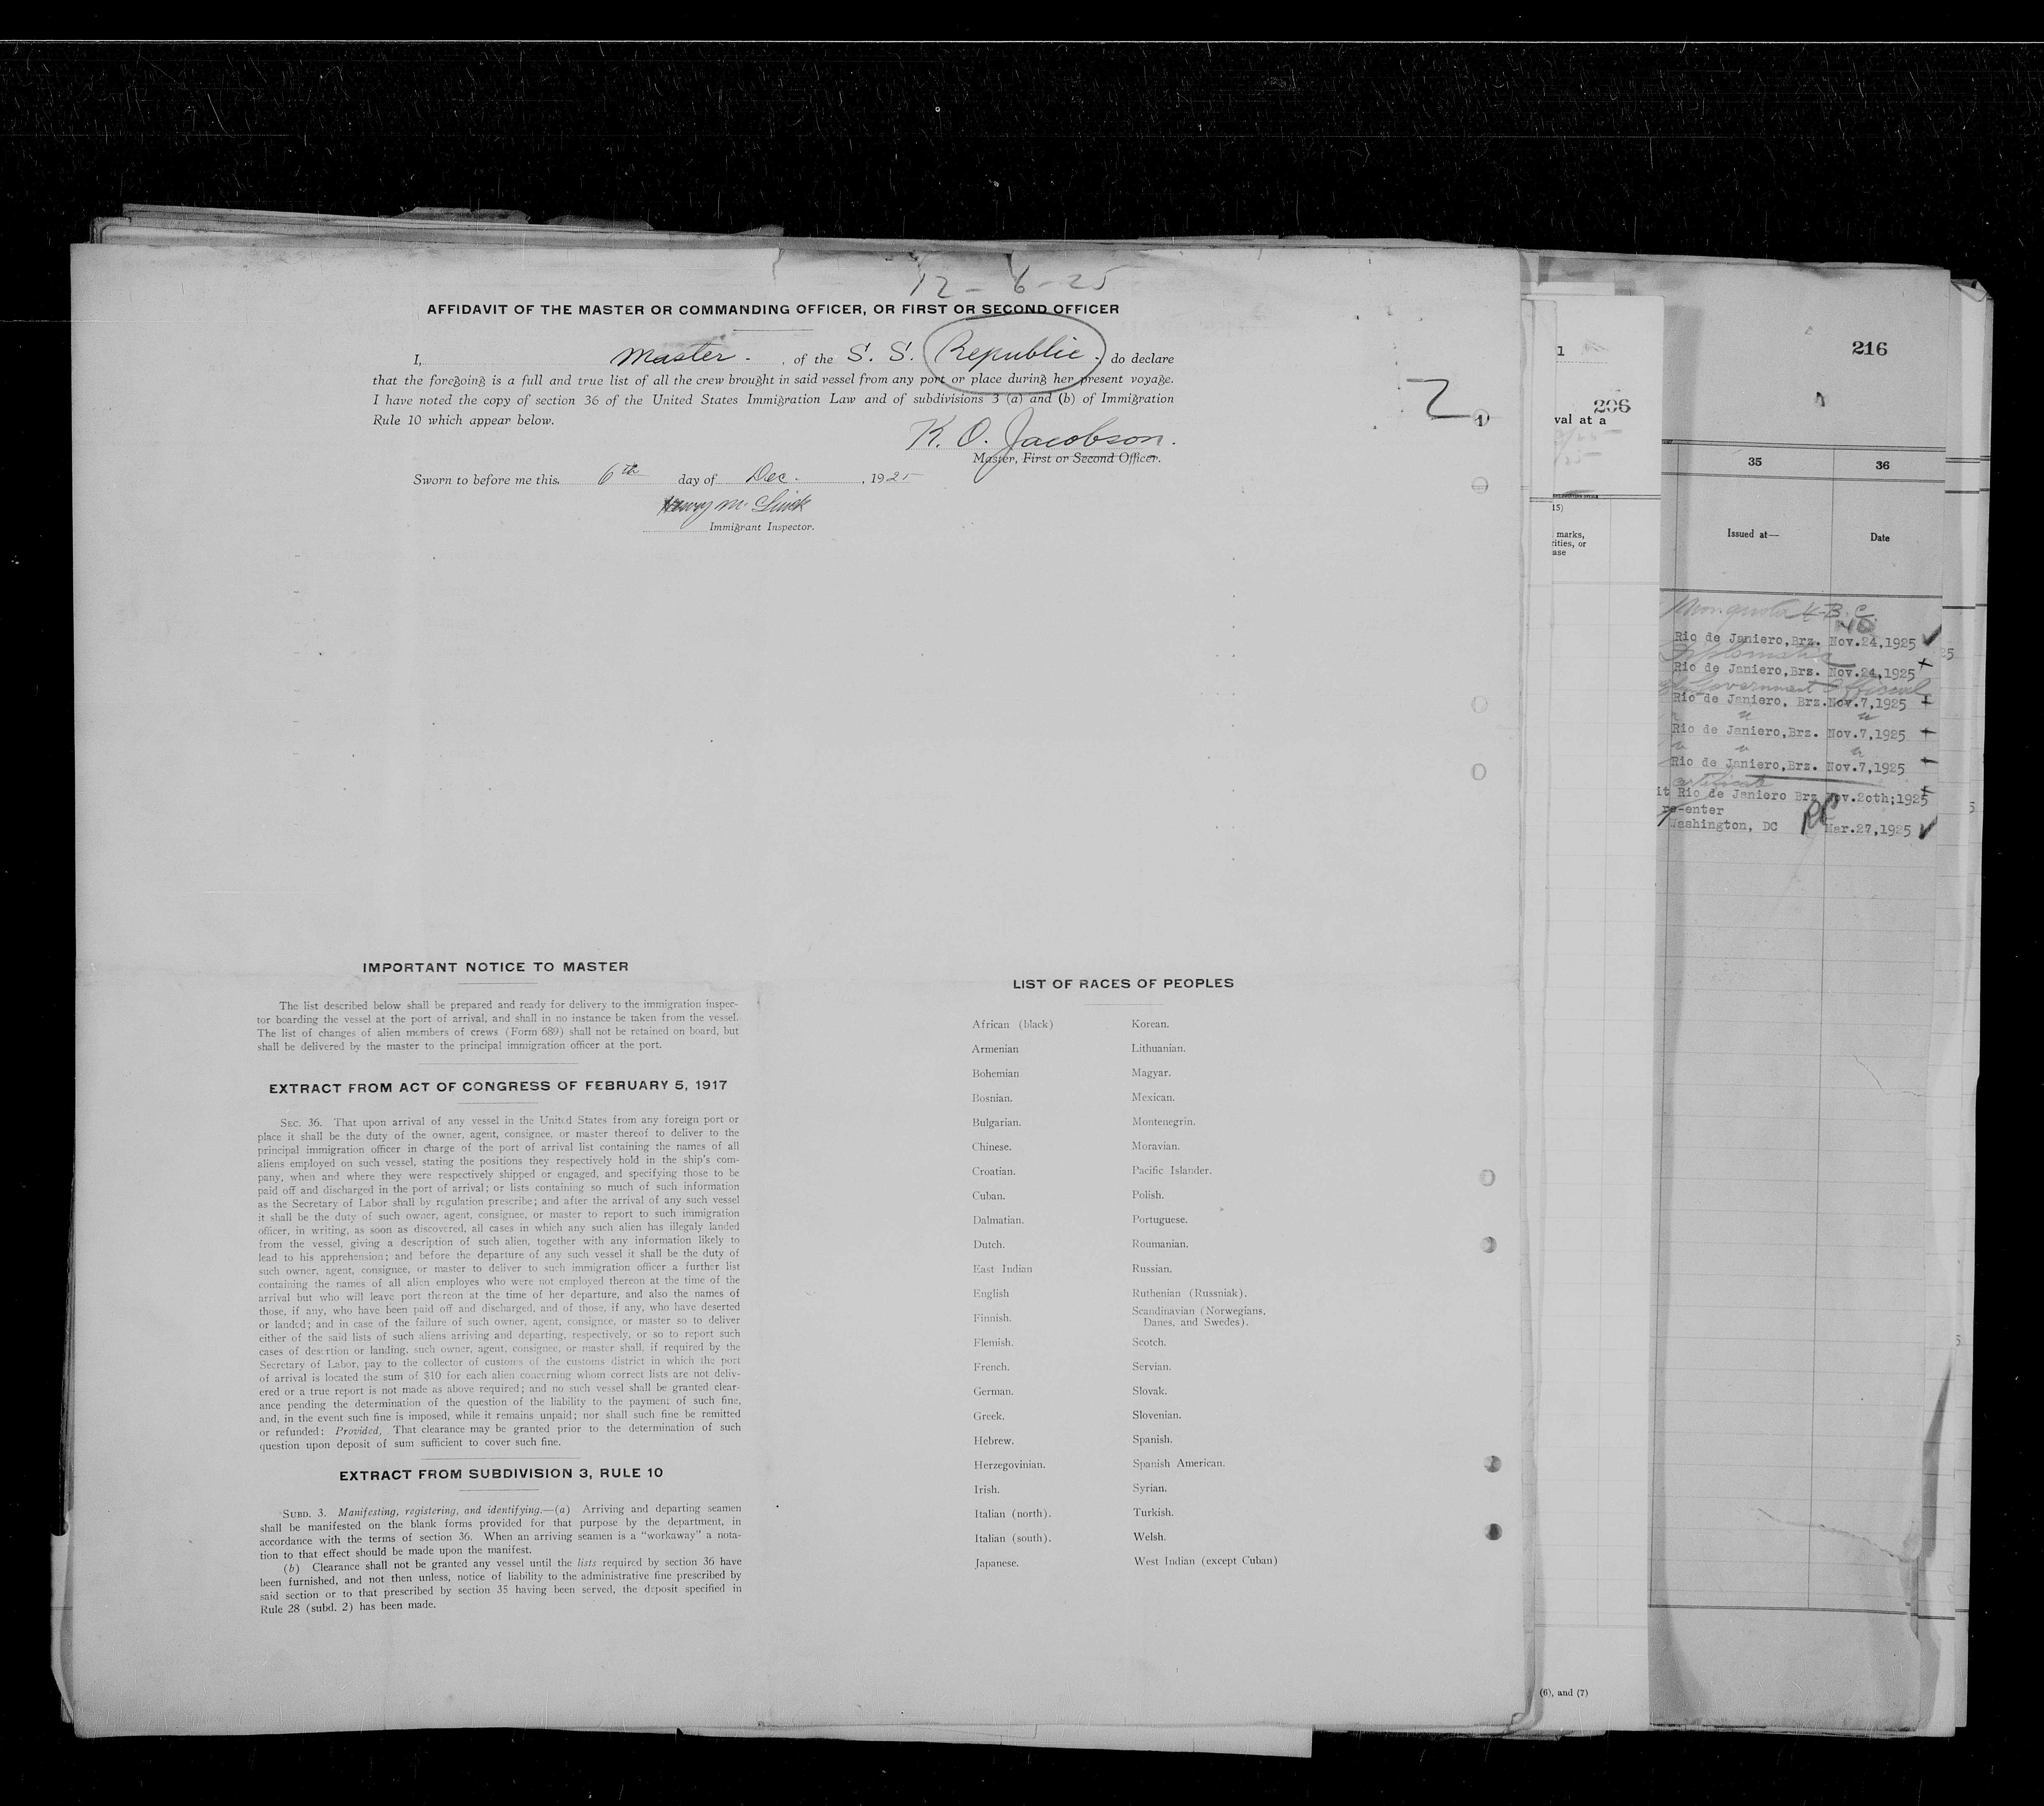 12-6-25
AFFIDAVIT OF THE MASTER OR COMMANDING OFFICER, OR FIRST OR SECOND OFFICER
I, Master. , of the S. S. Republic, do declare
that the foregoing is a full and true list of all the crew brought in said vessel from any port or place during her present voyage.
I have noted the copy of section 36 of the United States Immigration Law and of subdivisions 3 (a) and (b) of Immigration
Rule 10 which appear below.
K. O. Jacobson.
Master, First or Second Officer.
Sworn to before me this 6th day of Dec. , 1925
Henry M.
Immigrant Inspector.
2
1
IMPORTANT NOTICE TO MASTER
The list described below shall be prepared and ready for delivery to the immigration inspec-
tor boarding the vessel at the port of arrival, and shall in no instance be taken from the vessel.
The list of changes of alien members of crews (Form 689) shall not be retained on board, but
shall be delivered by the master to the principal immigration officer at the port.
EXTRACT FROM ACT OF CONGRESS OF FEBRUARY 5, 1917
SEC. 36. That upon arrival of any vessel in the United States from any foreign port or
place it shall be the duty of the owner, agent, consignee, or master thereof to deliver to the
principal immigration officer in charge of the port of arrival list containing the names of all
aliens employed on such vessel, stating the positions they respectively hold in the ship's com-
pany, when and where they were respectively shipped or engaged, and specifying those to be
paid off and discharged in the port of arrival; or lists containing so much of such information
as the Secretary of Labor shall by regulation prescribe; and after the arrival of any such vessel
it shall be the duty of such owner, agent, consignee, or master to report to such immigration
officer, in writing, as soon as discovered, all cases in which any such alien has illegally landed
from the vessel, giving a description of such alien, together with any information likely to
lead to his apprehension; and before the departure of any such vessel it shall be the duty of
such owner, agent, consignee, or master to deliver to such immigration officer a further list
containing the names of all alien employes who were not employed thereon at the time of the
arrival but who will leave port thereon at the time of her departure, and also the names of
those, if any, who have been paid off and discharged, and of those, if any, who have deserted
or landed; and in case of the failure of such owner, agent, consignee, or master so to deliver
either of the said lists of such aliens arriving and departing, respectively, or so to report such
cases of desertion or landing, such owner, agent, consignee, or master shall, if required by the
Secretary of Labor, pay to the collector of customs of the customs district in which the port
of arrival is located the sum of $10 for each alien concerning whom correct lists are not deliv-
ered or a true report is not made as above required; and no such vessel shall be granted clear-
ance pending the determination of the question of the liability to the payment of such fine,
and, in the event such fine is imposed, while it remains unpaid; nor shall such fine be remitted
or refunded: Provided, That clearance may be granted prior to the determination of such
question upon deposit of sum sufficient to cover such fine.
EXTRACT FROM SUBDIVISION 3, RULE 10
SUBD. 3. Manifesting, registering, and identifying.—(a) Arriving and departing seamen
shall be manifested on the blank forms provided for that purpose by the department, in
accordance with the terms of section 36. When an arriving seamen is a "workaway" a nota-
tion to that effect should be made upon the manifest.
(b) Clearance shall not be granted any vessel until the lists required by section 36 have
been furnished, and not then unless, notice of liability to the administrative fine prescribed by
said section or to that prescribed by section 35 having been served, the deposit specified in
Rule 28 (subd. 2) has been made.
LIST OF RACES OF PEOPLES
African (black) Korean.
Armenian Lithuanian.
Bohemian Magyar.
Bosnian. Mexican.
Bulgarian. Montenegrin.
Chinese. Moravian.
Croatian. Pacific Islander.
Cuban. Polish.
Dalmatian. Portuguese.
Dutch. Roumanian.
East Indian Russian.
English Ruthenian (Russniak).
Finnish. Scandinavian (Norwegians,
Danes, and Swedes).
Flemish. Scotch.
French. Servian.
German. Slovak.
Greek. Slovenian.
Hebrew. Spanish.
Herzegovinian. Spanish American.
Irish. Syrian.
Italian (north). Turkish.
Italian (south). Welsh.
Japanese. West Indian (except Cuban)
1
206
val at a
15)
marks,
ities, or
ase
(6), and (7)
216
35 36
Issued at— Date
Rio de Janiero,Brz. Nov.24,1925
Rio de Janiero,Brz. Nov.24,1925
Government Official
Rio de Janiero, Brz. Nov.7,1925
Rio de Janiero,Brz. Nov.7,1925
Rio de Janiero,Brz. Nov.7,1925
certificate
it Rio de Janiero Brz Nov.2oth;1925
re-enter
Washington, DC Mar.27,1925